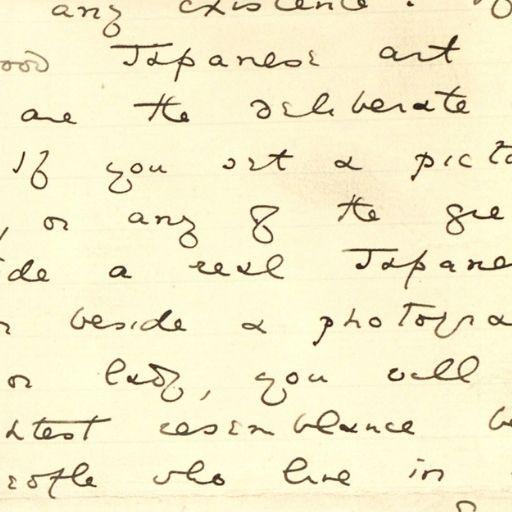 any existence.
ood Japanese art
are the deliberate
If you set a pict
, or any of the gre
ide a real Japane
r beside a photogra
or lady, you will
htest resemblance be
eople who live in